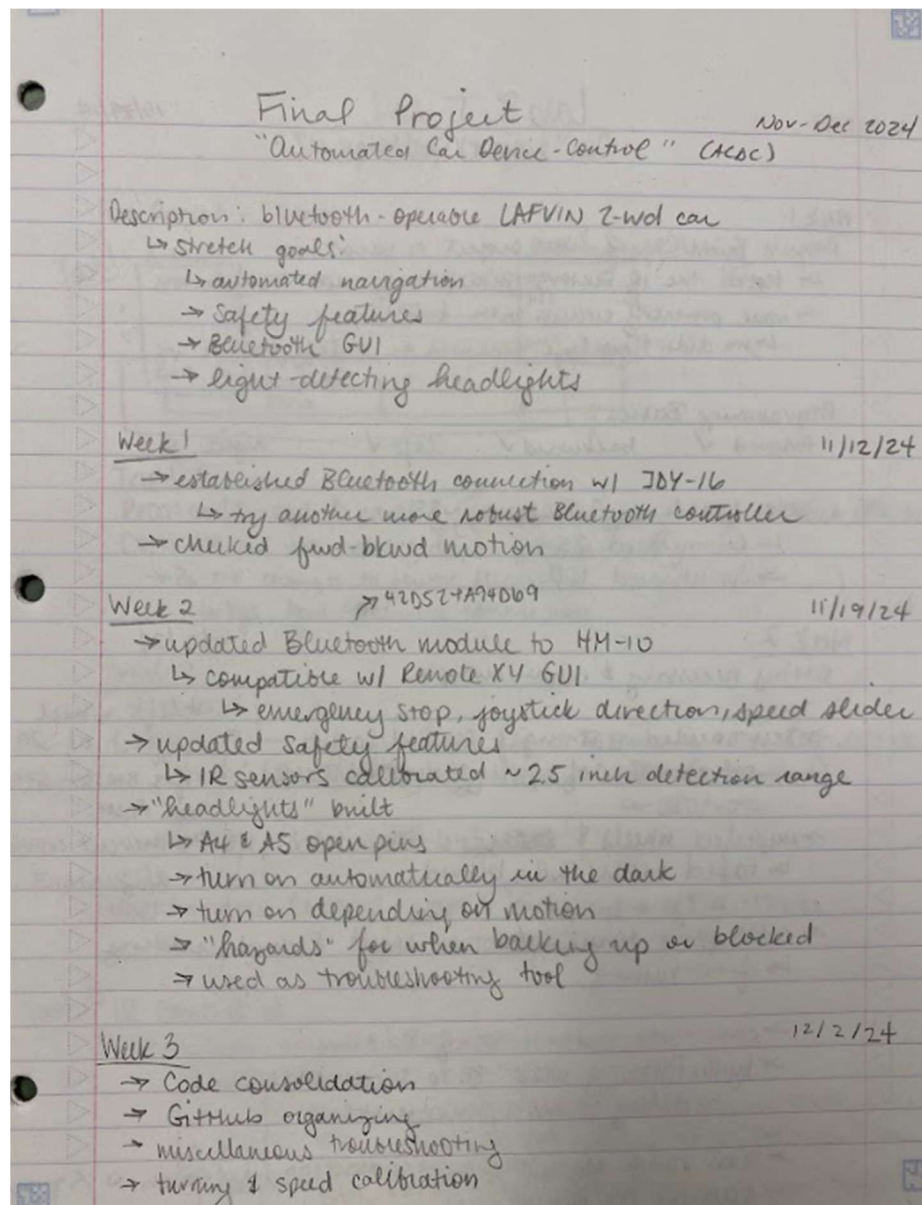 Final Project
Nov-Dec 2024
"Automated Car Device-Control" (ACDC)
Description: bluetooth-operable LAFVIN 2-wd car
↳ stretch goals:
↳ automated navigation
→ Safety features
→ Bluetooth GUI
→ light-detecting headlights
Week 1 11/12/24
→ established Bluetooth connection w/ JDY-16
↳ try another more robust Bluetooth controller
→ checked fwd-bkwd motion
Week 2 11/19/24
→ updated Bluetooth module to HM-10
↳ compatible w/ Remote XY GUI
↳ emergency stop, joystick direction, speed slider
→ updated safety features
↳ IR sensors calibrated ~2.5 inch detection range
→ "headlights" built
↳ A4 & A5 open pins
→ turn on automatically in the dark
→ turn on depending on motion
→ "hazards" for when backing up or blocked
→ used as troubleshooting tool
Week 3 12/2/24
→ Code consolidation
→ GitHub organizing
→ miscellaneous troubleshooting
→ turning & speed calibration